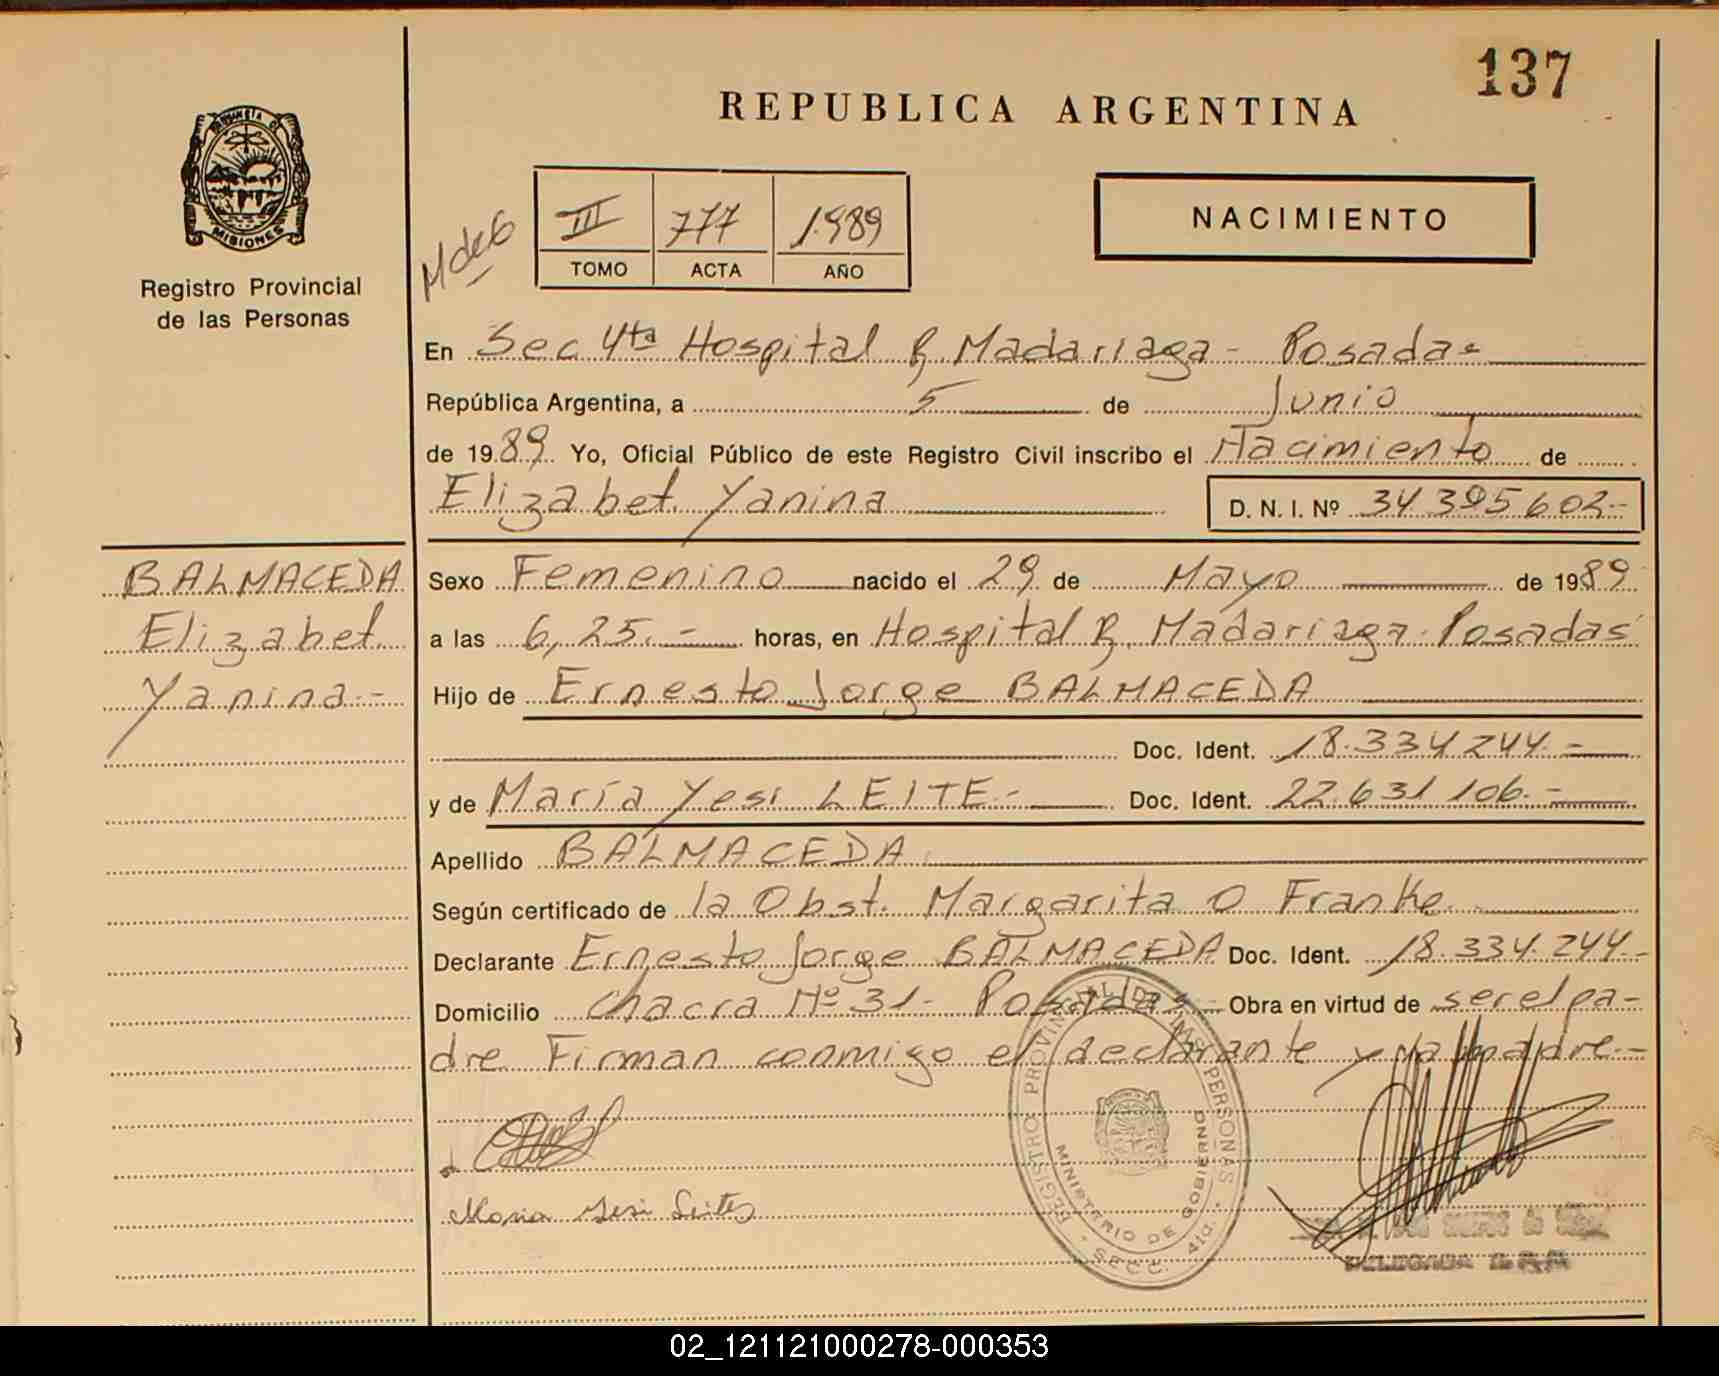 137
REPUBLICA ARGENTINA
PROVINCIA DE
MISIONES
Registro Provincial
de las Personas
III 777 1.989
TOMO ACTA AÑO
NACIMIENTO
En Sec 4ta Hospital R, Madariaga - Posadas
República Argentina, a 5 de Junio
de 1989 Yo, Oficial Público de este Registro Civil inscribo el Nacimiento de
Elizabet Yanina D. N. I. Nº 34 395 602.-
BALMACEDA
Elizabet
Yanina.-
Sexo Femenino nacido el 29 de Mayo de 1989
a las 6,25.- horas, en Hospital R. Madariaga. Posadas
Hijo de Ernesto Jorge BALMACEDA
Doc. Ident. 18.334 244.-
y de María Yesi LEITE.- Doc. Ident. 22.631 106.-
Apellido BALMACEDA.
Según certificado de la Obst. Margarita O Franke.
Declarante Ernesto Jorge BALMACEDA Doc. Ident. 18.334.244.-
Domicilio chacra Nº 31- Posadas - Obra en virtud de ser el pa-
dre. Firman conmigo el declarante y la madre.-
REGISTRO PROVINCIAL DE LAS PERSONAS
MINISTERIO DE GOBIERNO
SECC. 4ta.
Maria Yesi Leites
DELEGADA
02_121121000278-000353